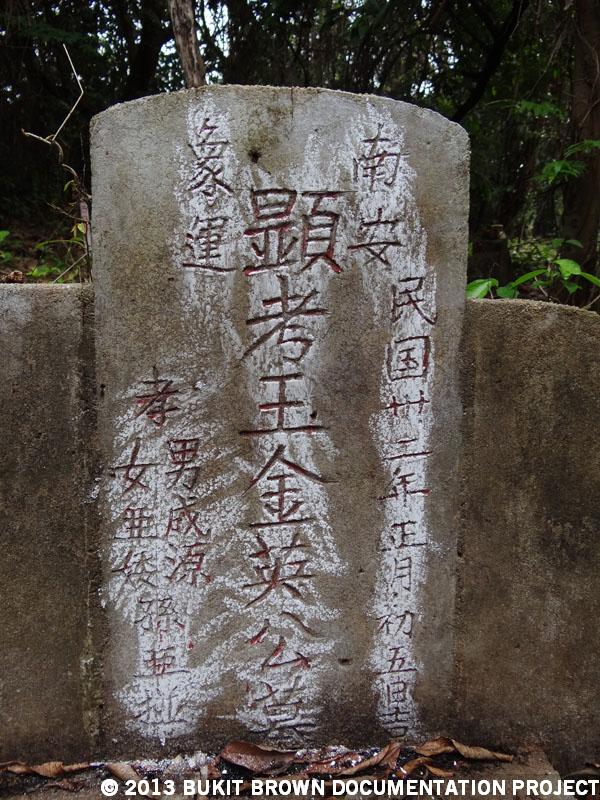 南安
民国卅二年正月初五日吉
顕考王金英公墓
象運
孝
男成源
女亞 孫亜
© 2013 BUKIT BROWN DOCUMENTATION PROJECT